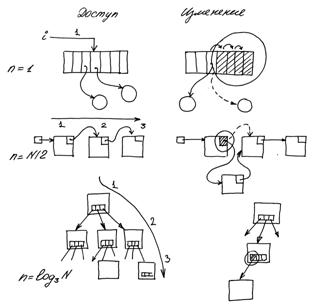 Доступ Изменение
i 1
n=1
1 2 3
n=N/2
1
2
3
n=log₃N